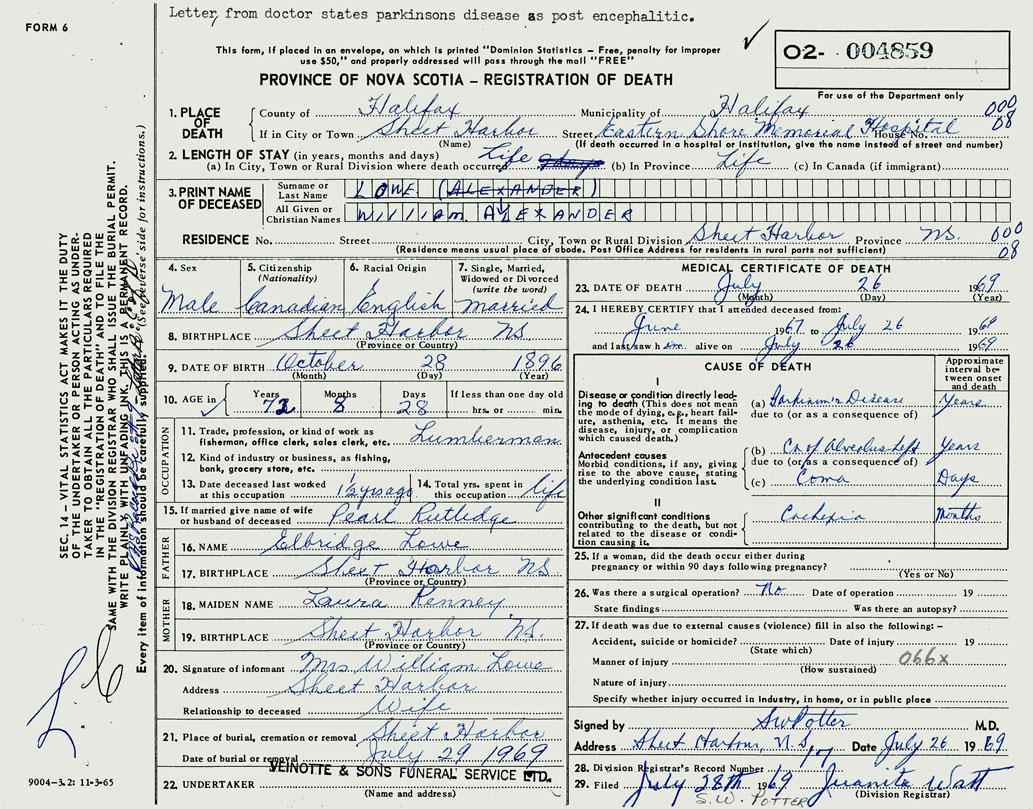 Letter, from doctor states parkinsons disease as post encephalitic.
FORM 6
This form, if placed in an envelope, on which is printed "Dominion Statistics – Free, penalty for improper
use $50," and properly addressed will pass through the mail "FREE"
PROVINCE OF NOVA SCOTIA – REGISTRATION OF DEATH
O2- 004859
For use of the Department only
1. PLACE OF DEATH
County of Halifax Municipality of Halifax 000
If in City or Town Sheet Harbor Street Eastern Shore Memorial Hospital House No. 08
(Name) (If death occurred in a hospital or institution, give the name instead of street and number)
2. LENGTH OF STAY (in years, months and days)
(a) In City, Town or Rural Division where death occurred Life (b) In Province Life (c) In Canada (if immigrant)
3. PRINT NAME OF DECEASED
Surname or Last Name LOWE (ALEXANDER)
All Given or Christian Names William ALEXANDER
RESIDENCE No. Street City, Town or Rural Division Sheet Harbor Province N.S. 000
(Residence means usual place of abode. Post Office Address for residents in rural parts not sufficient) 08
4. Sex Male
5. Citizenship (Nationality) Canadian
6. Racial Origin English
7. Single, Married, Widowed or Divorced (write the word) married
8. BIRTHPLACE Sheet Harbor NS
(Province or Country)
9. DATE OF BIRTH October 28 1896
(Month) (Day) (Year)
10. AGE in Years 72 Months 8 Days 28 If less than one day old hrs. or min.
OCCUPATION
11. Trade, profession or kind of work as fisherman, office clerk, sales clerk, etc. Lumberman
12. Kind of industry or business, as fishing, bank, grocery store, etc.
13. Date deceased last worked at this occupation 12 yrs ago
14. Total yrs. spent in this occupation life
15. If married give name of wife or husband of deceased Pearl Rutledge
FATHER
16. NAME Elbridge Lowe
17. BIRTHPLACE Sheet Harbor NS.
(Province or Country)
MOTHER
18. MAIDEN NAME Laura Renney
19. BIRTHPLACE Sheet Harbor NS.
(Province or Country)
20. Signature of informant Mrs William Lowe
Address Sheet Harbor
Relationship to deceased Wife
21. Place of burial, cremation or removal Sheet Harbor
Date of burial or removal July 29 1969
22. UNDERTAKER VEINOTTE & SONS FUNERAL SERVICE LTD.
(Name and address)
MEDICAL CERTIFICATE OF DEATH
23. DATE OF DEATH July 26 1969
(Month) (Day) (Year)
24. I HEREBY CERTIFY that I attended deceased from:
June 1967 to July 26 1969
and last saw him alive on July 26 1969
CAUSE OF DEATH
Approximate interval between onset and death
I
Disease or condition directly leading to death (This does not mean the mode of dying, e.g., heart failure, asthenia, etc. It means the disease, injury, or complication which caused death.)
(a) Parkinson's Disease Years
due to (or as a consequence of)
Antecedent causes
Morbid conditions, if any, giving rise to the above cause, stating the underlying condition last.
(b) Ca of Alveolus Left Years
due to (or as a consequence of)
(c) Coma Days
II
Other significant conditions contributing to the death, but not related to the disease or condition causing it.
Cachexia Months
25. If a woman, did the death occur either during pregnancy or within 90 days following pregnancy?
(Yes or No)
26. Was there a surgical operation? No Date of operation 19
State findings Was there an autopsy?
27. If death was due to external causes (violence) fill in also the following: –
Accident, suicide or homicide? Date of injury 19
(State which)
Manner of injury 066x
(How sustained)
Nature of injury
Specify whether injury occurred in industry, in home, or in public place
Signed by SW Potter M.D.
Address Sheet Harbour, N.S. Date July 26 1969
28. Division Registrar's Record Number 17
29. Filed July 28th 1969 Juanita Watt
(Division Registrar)
S.W. POTTER
SEC. 14 – VITAL STATISTICS ACT MAKES IT THE DUTY
OF THE UNDERTAKER OR PERSON ACTING AS UNDER-
TAKER TO OBTAIN ALL THE PARTICULARS REQUIRED
IN THE "REGISTRATION OF DEATH" AND TO FILE THE
SAME WITH THE DIVISION REGISTRAR WHO SHALL ISSUE THE BURIAL PERMIT.
WRITE PLAINLY, WITH UNFADING INK. THIS IS A PERMANENT RECORD.
Every item of information should be carefully supplied. (See reverse side for instructions.)
9004–3.2: 11-3-65